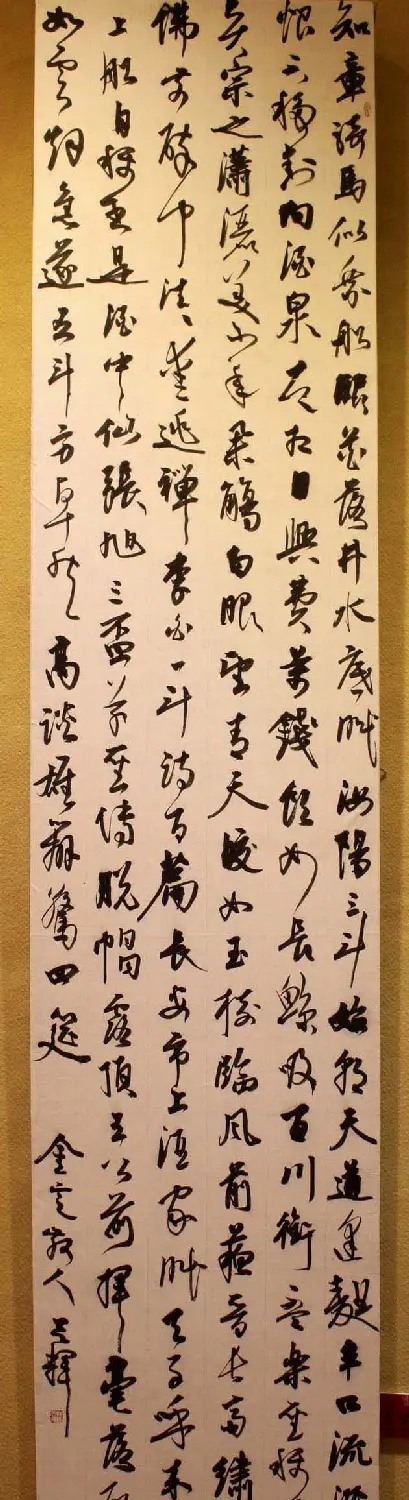 知章騎馬似乘船眼花落井水底眠汝陽三斗始朝天道逢麴車口流涎
恨不移封向酒泉左相日興費萬錢飲如長鯨吸百川銜杯樂聖稱
賢宗之瀟灑美少年舉觴白眼望青天皎如玉樹臨風前蘇晉長齋繡
佛前醉中往往愛逃禪李白一斗詩百篇長安市上酒家眠天子呼來
上船自稱臣是酒中仙張旭三盃草聖傳脫帽露頂王公前揮毫落紙
如雲煙焦遂五斗方卓然高談雄辯驚四筵
金散人輝